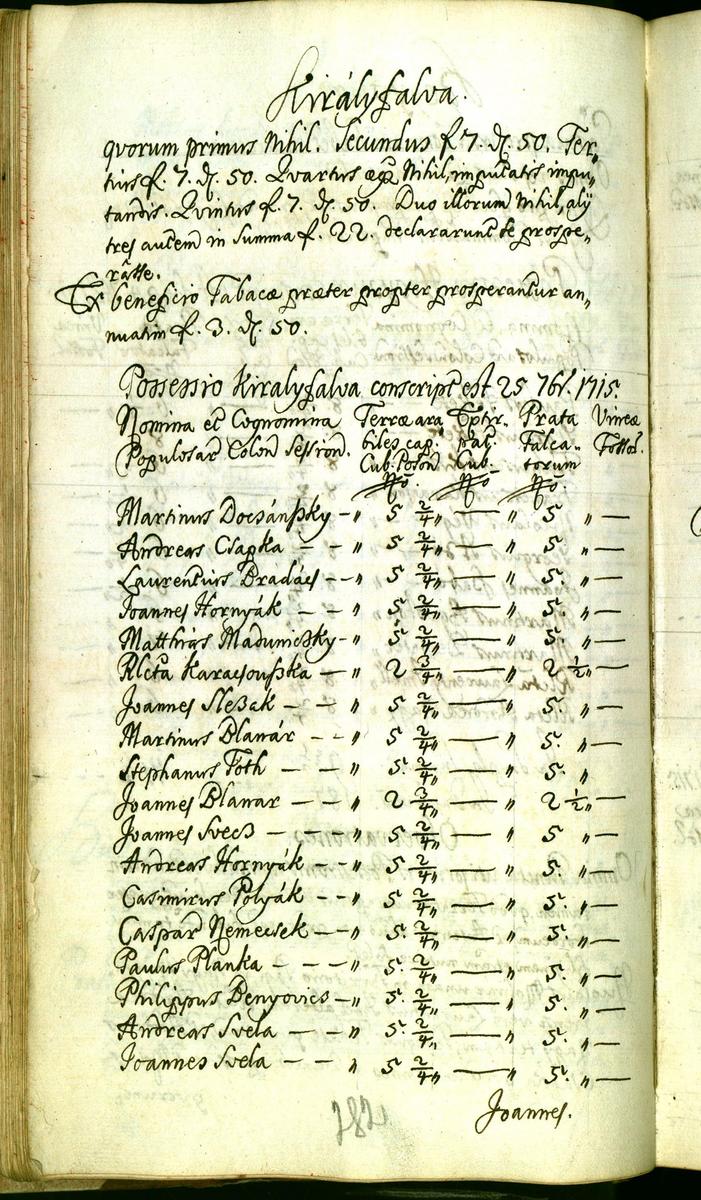 Királyfalva.
qvorum primus Nihil. Secundus f. 7. d. 50. Ter,,
tius f. 7. d. 50. Qvartus æq̃ Nihil, imputatis impu,,
tandis. Qvintus f. 7. d. 50. Duo illorum Nihil, alij
tres autem in Summa f. 22. declararunt se prospe,,
râsse.
Ex beneficio Tabacæ præter propter prosperantur an,,
nuatim f. 3. d. 50.
Possessio Kiralyfalva conscript est 25 7br. 1715.
Nomina et Cognomina Terræ ara Exstir,, Prata Vineæ
Populosar Colon Session. biles cap. pat. Falca,, Fosso.
Cub. Poson Cub. torum
No. No No.
Martinus Docsánßky – " 5 2/4 " — " 5. " —
Andreas Csapka – – " 5 2/4 " — " 5. " —
Laurentius Bradács – – " 5 2/4 " — " 5. " —
Joannes Hornyák – – " 5 2/4 " — " 5. " —
Matthias Maduniczky – " 5 2/4 " — " 5. " —
Rlcta Karacsoußka – " 2 3/4 " — " 2 1/2 " —
Joannes Slezák – – " 5 2/4 " — " 5. " —
Martinus Blanár – – " 5 2/4 " — " 5. " —
Stephanus Toth – – " 5. 2/4 " — " 5. "
Joannes Blanar – – " 2 3/4 " — " 2 1/2 " —
Joannes Svecz – – – " 5 2/4 " — " 5 " —
Andreas Hornyák – – " 5 2/4 " — " 5. " —
Casimirus Polyák – – " 5 2/4 " — " 5. " —
Caspar Nemecsek – – " 5. 2/4 " — " 5. " —
Paulus Planka – – – " 5. 2/4 " — " 5. " —
Philippus Benyovics – " 5. 2/4 " — " 5. " —
Andreas Svela – – " 5. 2/4 " — " 5. " —
Joannes Svela – – " 5 2/4 " — " 5. " —
Joannes.